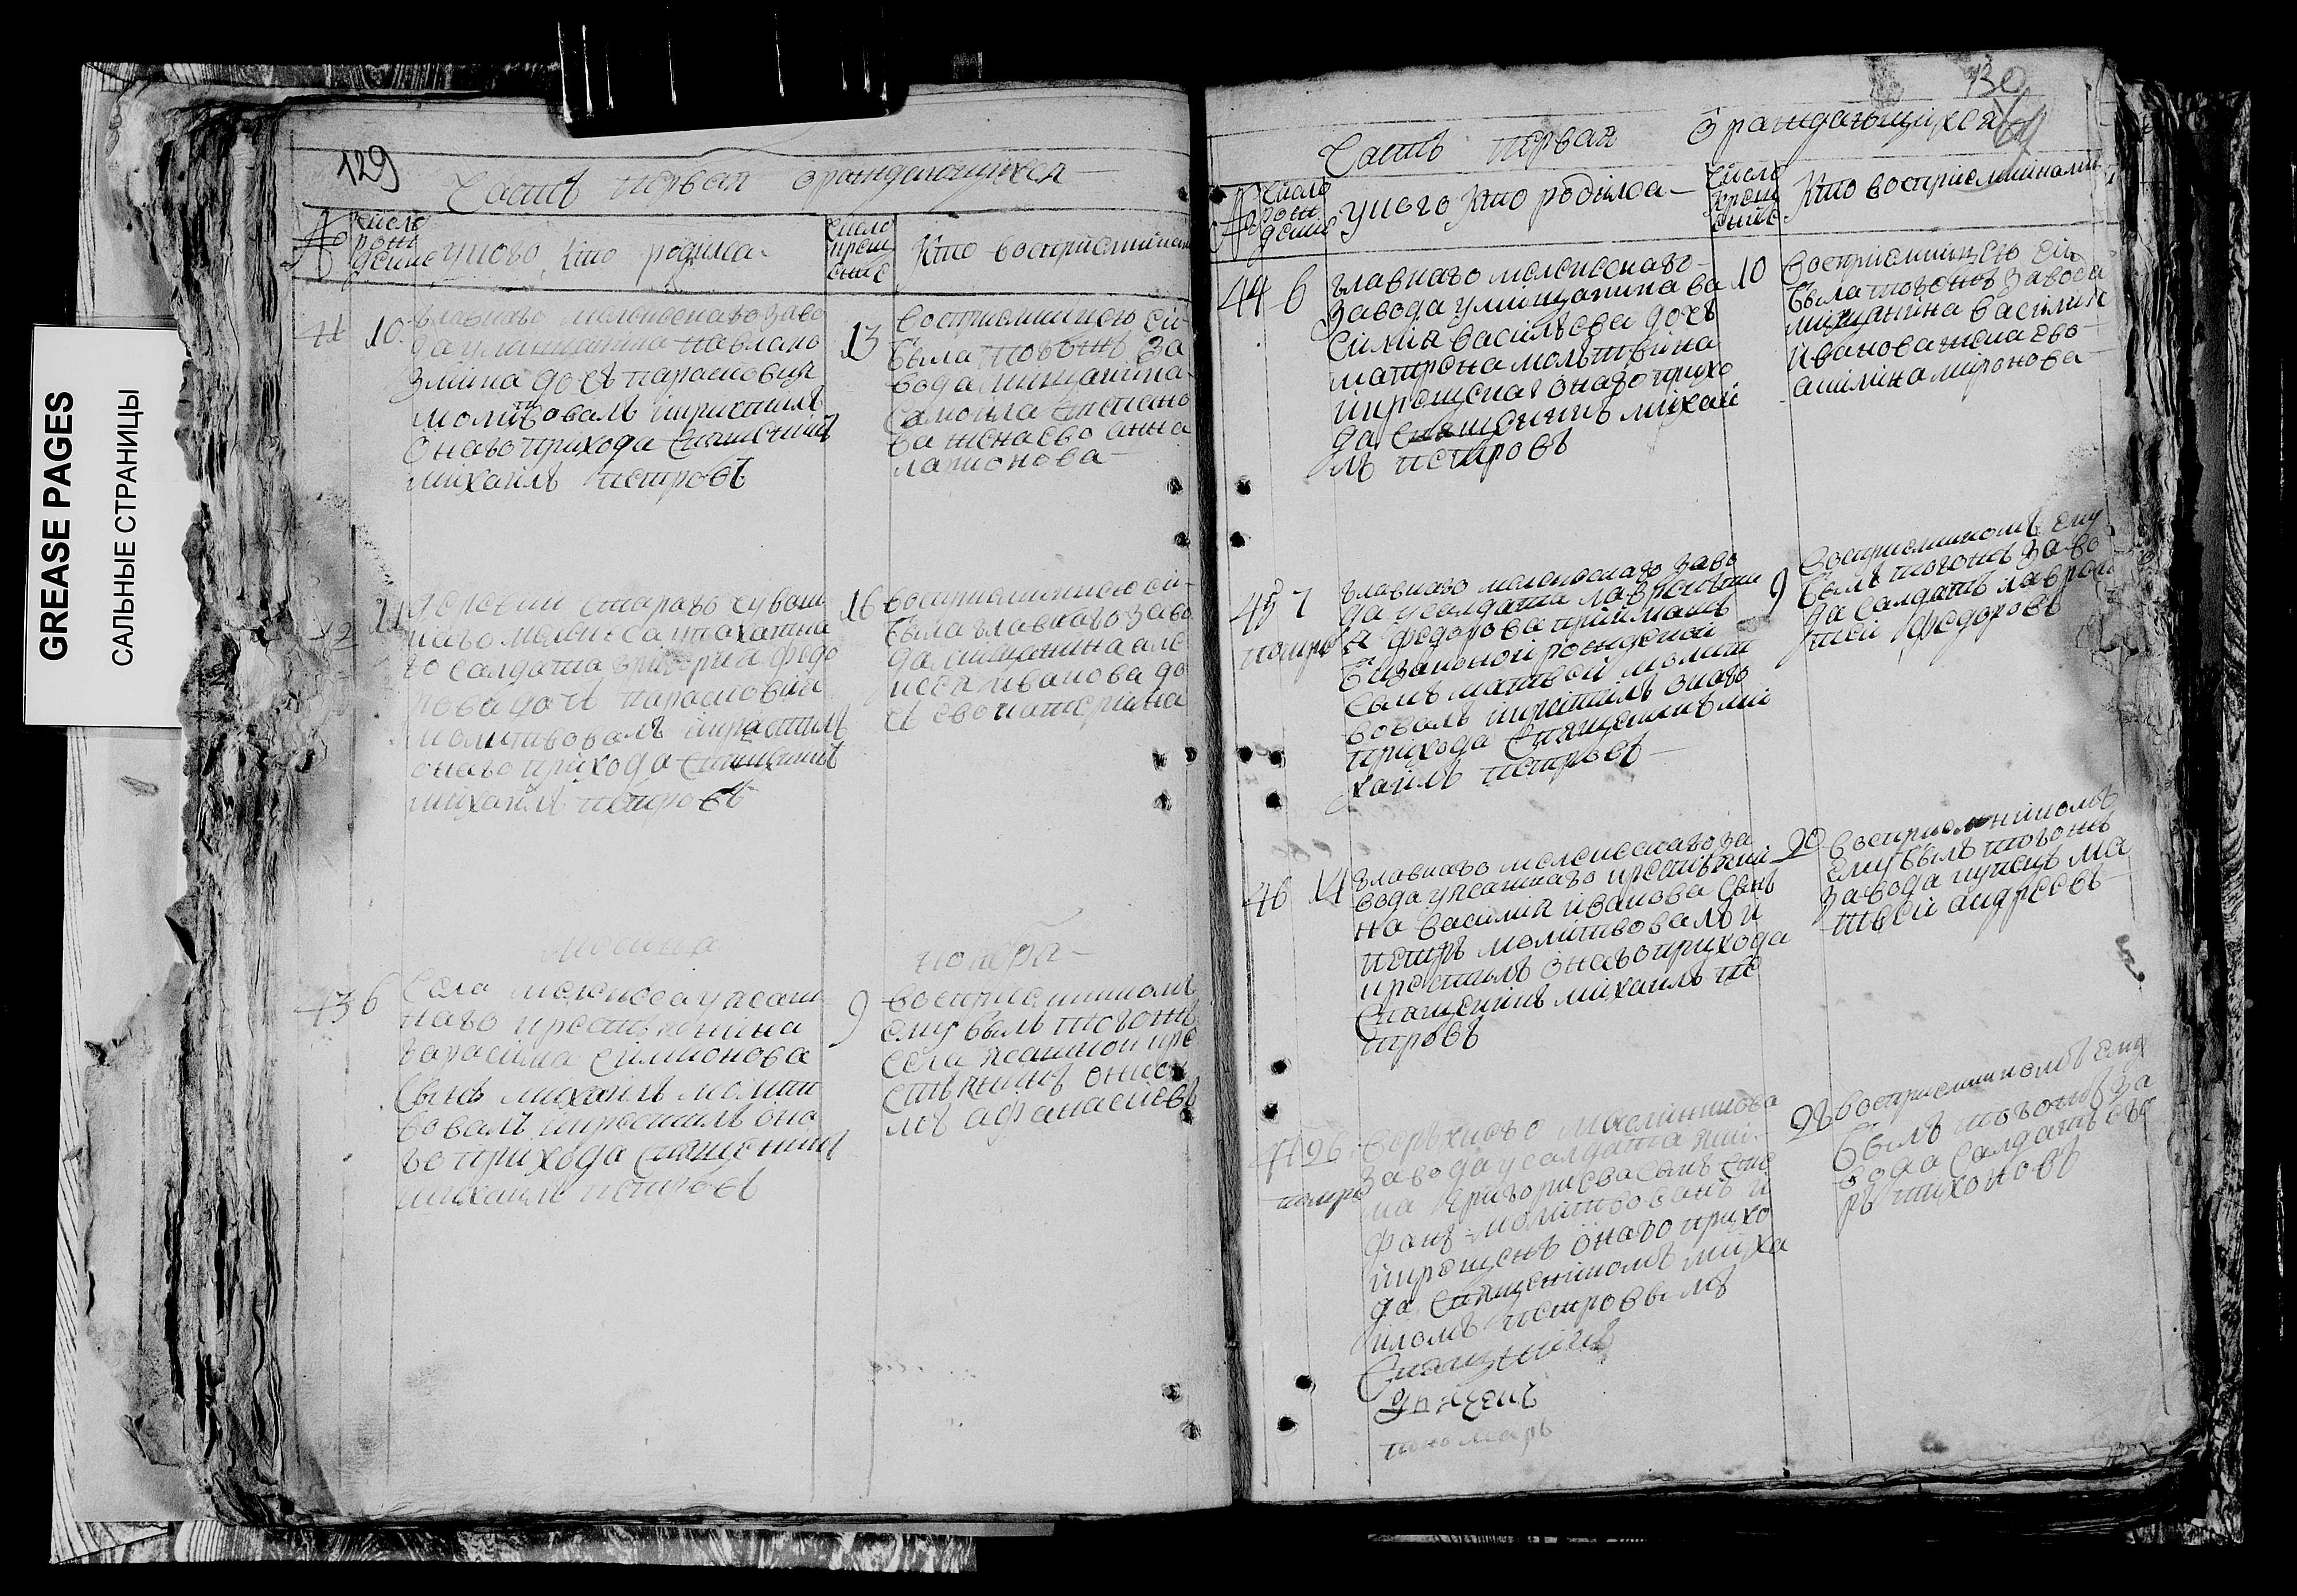 GREASE PAGES
САЛЬНЫЕ СТРАНИЦЫ
129
Часть первая ораждающихся
№
число рождение
уково кто родился
число крещение
кто восприемникам
41
10
главнаго мелекескаго заво
да у мищанина павла ко
змина дочь парасковия
молитвовалъ икрестилъ
онаго прихода священникъ
михаилъ петровъ
13
восприемницею ей
была тогожъ за
вода мищанина
самоила степано
ва жена ево анна
ларионова
42
11
деревни стараго
салдата григория федо
рова дочь парасковия
молитвовалъ икрестилъ
онаго прихода священникъ
михаилъ петровъ
16
восприемницею ей
была главнаго заво
да мищанина але
ксея иванова до
чь ево катерина
месяца
ноября
43
6
села мелекеса у ясаш
наго крестьянина
гарасима симионова
сынъ михаилъ молит
вовалъ икрестилъ она
го прихода священникъ
михаилъ петровъ
9
восприемникомъ
ему былъ тогожъ
села ясашной кре
стьянинъ аниси
мъ афанасиевъ
130
Часть первая ораждающихся
№
число рождение
укого кто родился
число крещение
кто восприемниками
44
6
главнаго мелекескаго
завода у мищанина ва
силия васильева дочь
матрона молитвина
икрещена онаго прихо
да священникъ михаи
лъ петровъ
10
восприемницею ей
была тогожъ завода
мищанина василия
иванова жена ево
акилина миронова
45
7
помре
главнаго мелекескаго заво
да у салдата лаврентьи
я федорова приймашъ
безаконой рожденой
сынъ матвей молит
вовалъ икрестилъ онаго
прихода священникъ ми
хаилъ петровъ
9
восприемникомъ ему
былъ тогожъ заво
да салдатъ лаврен
тей федоровъ
46
14
главнаго мелекескаго за
вода у ясашнаго крестьяни
на василия иванова сынъ
петръ молитвовалъ и
крестилъ онаго прихода
священникъ михаилъ пе
тровъ
20
восприемникомъ
ему былъ тогожъ
завода купецъ ма
твей андреевъ
47
26
помре
верхнего
завода у салдата
на григориева сынъ сте
фанъ молитвованъ и
икрещенъ онаго прихо
да священникомъ миха
иломъ петровымъ
священникъ
дьячекъ
пономарь
28
восприемникомъ ему
былъ тогожъ за
вода салдатъ его
ръ тихоновъ